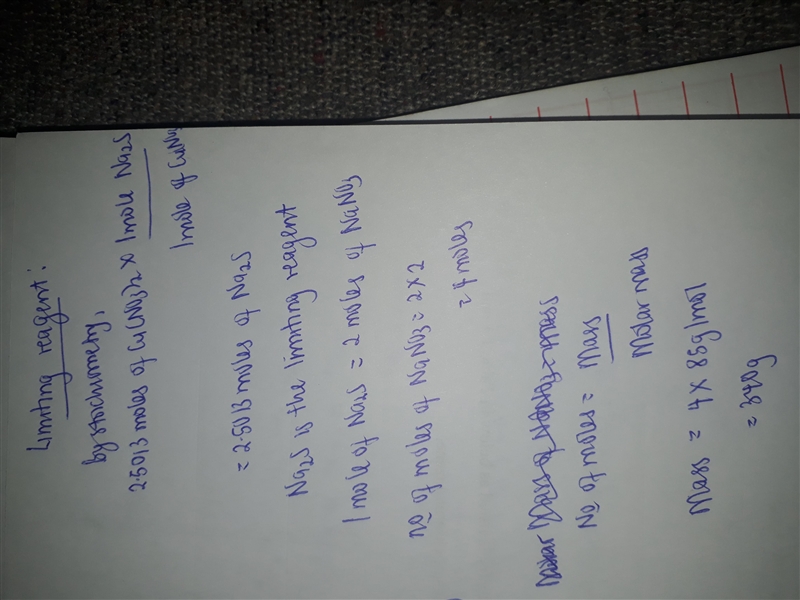 Limiting reagent:
by stochiometry,
2.5013 moles of Cu(NO3)2 × 1mole Na2S
1mole of CuNO3
= 2.5013 moles of Na2S
Na2S is the limiting reagent
1 mole of Na2S = 2 moles of NaNO3
no of moles of NaNO3 = 2×2
= 4 moles
No of moles = Mass
Molar mass
Mass = 4 × 85g/mol
= 340g